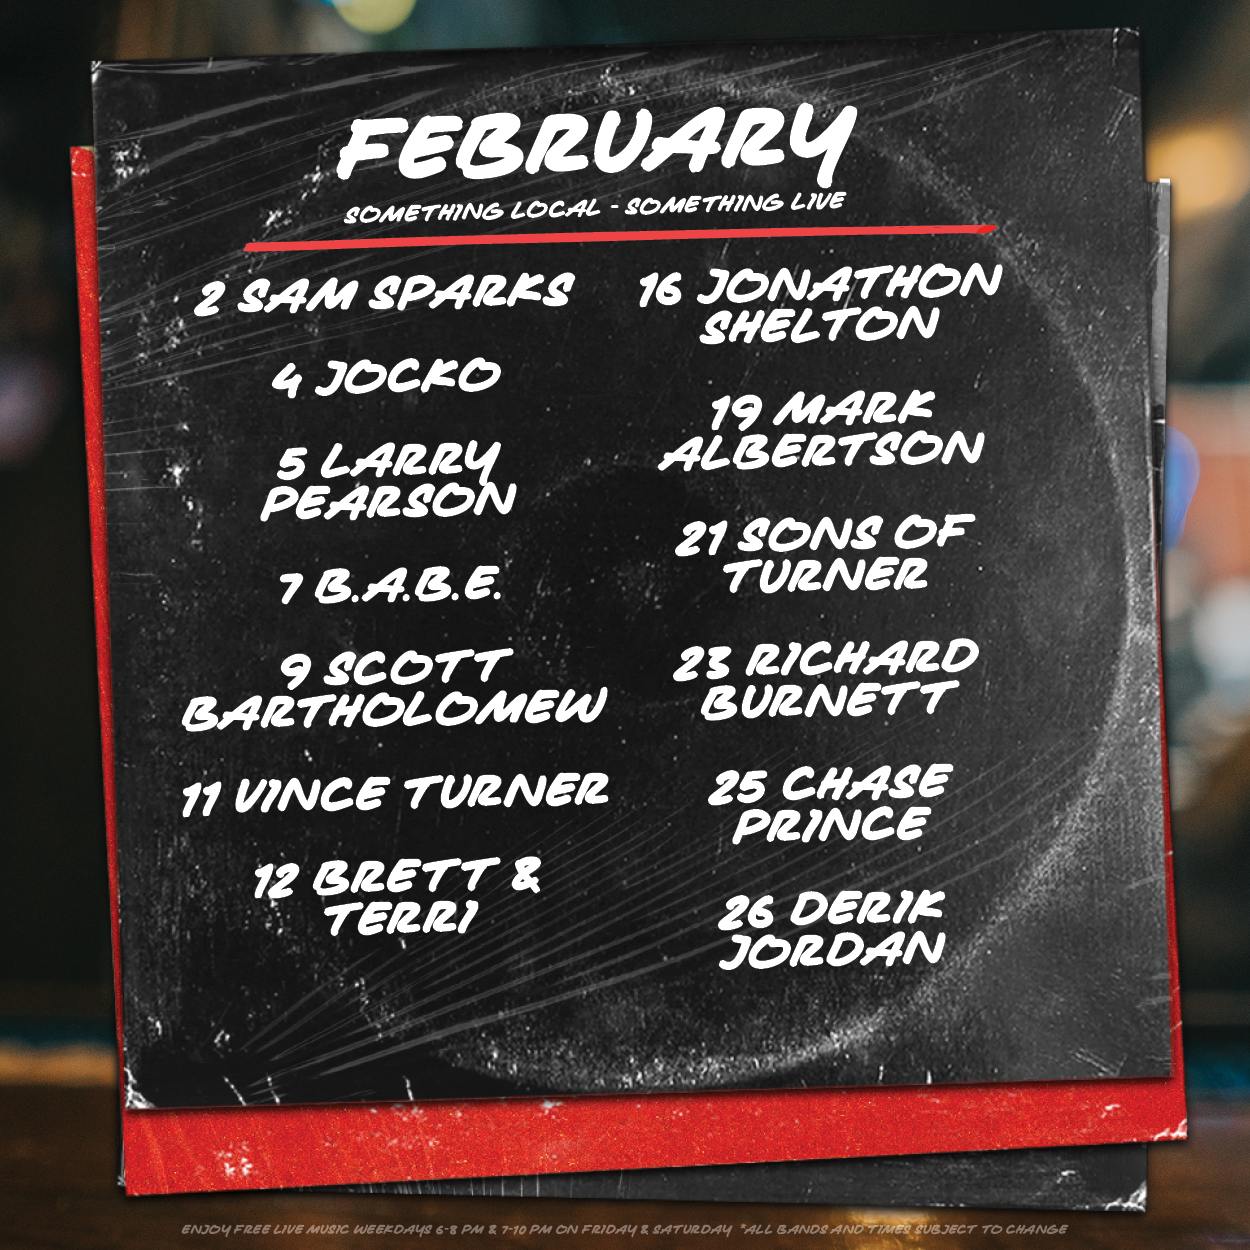 FEBRUARY
SOMETHING LOCAL - SOMETHING LIVE
2 SAM SPARKS
4 JOCKO
5 LARRY
PEARSON
7 B.A.B.E.
9 SCOTT
BARTHOLOMEW
11 VINCE TURNER
12 BRETT &
TERRI
16 JONATHON
SHELTON
19 MARK
ALBERTSON
21 SONS OF
TURNER
23 RICHARD
BURNETT
25 CHASE
PRINCE
26 DERIK
JORDAN
ENJOY FREE LIVE MUSIC WEEKDAYS 6-8 PM & 7-10 PM ON FRIDAY & SATURDAY *ALL BANDS AND TIMES SUBJECT TO CHANGE